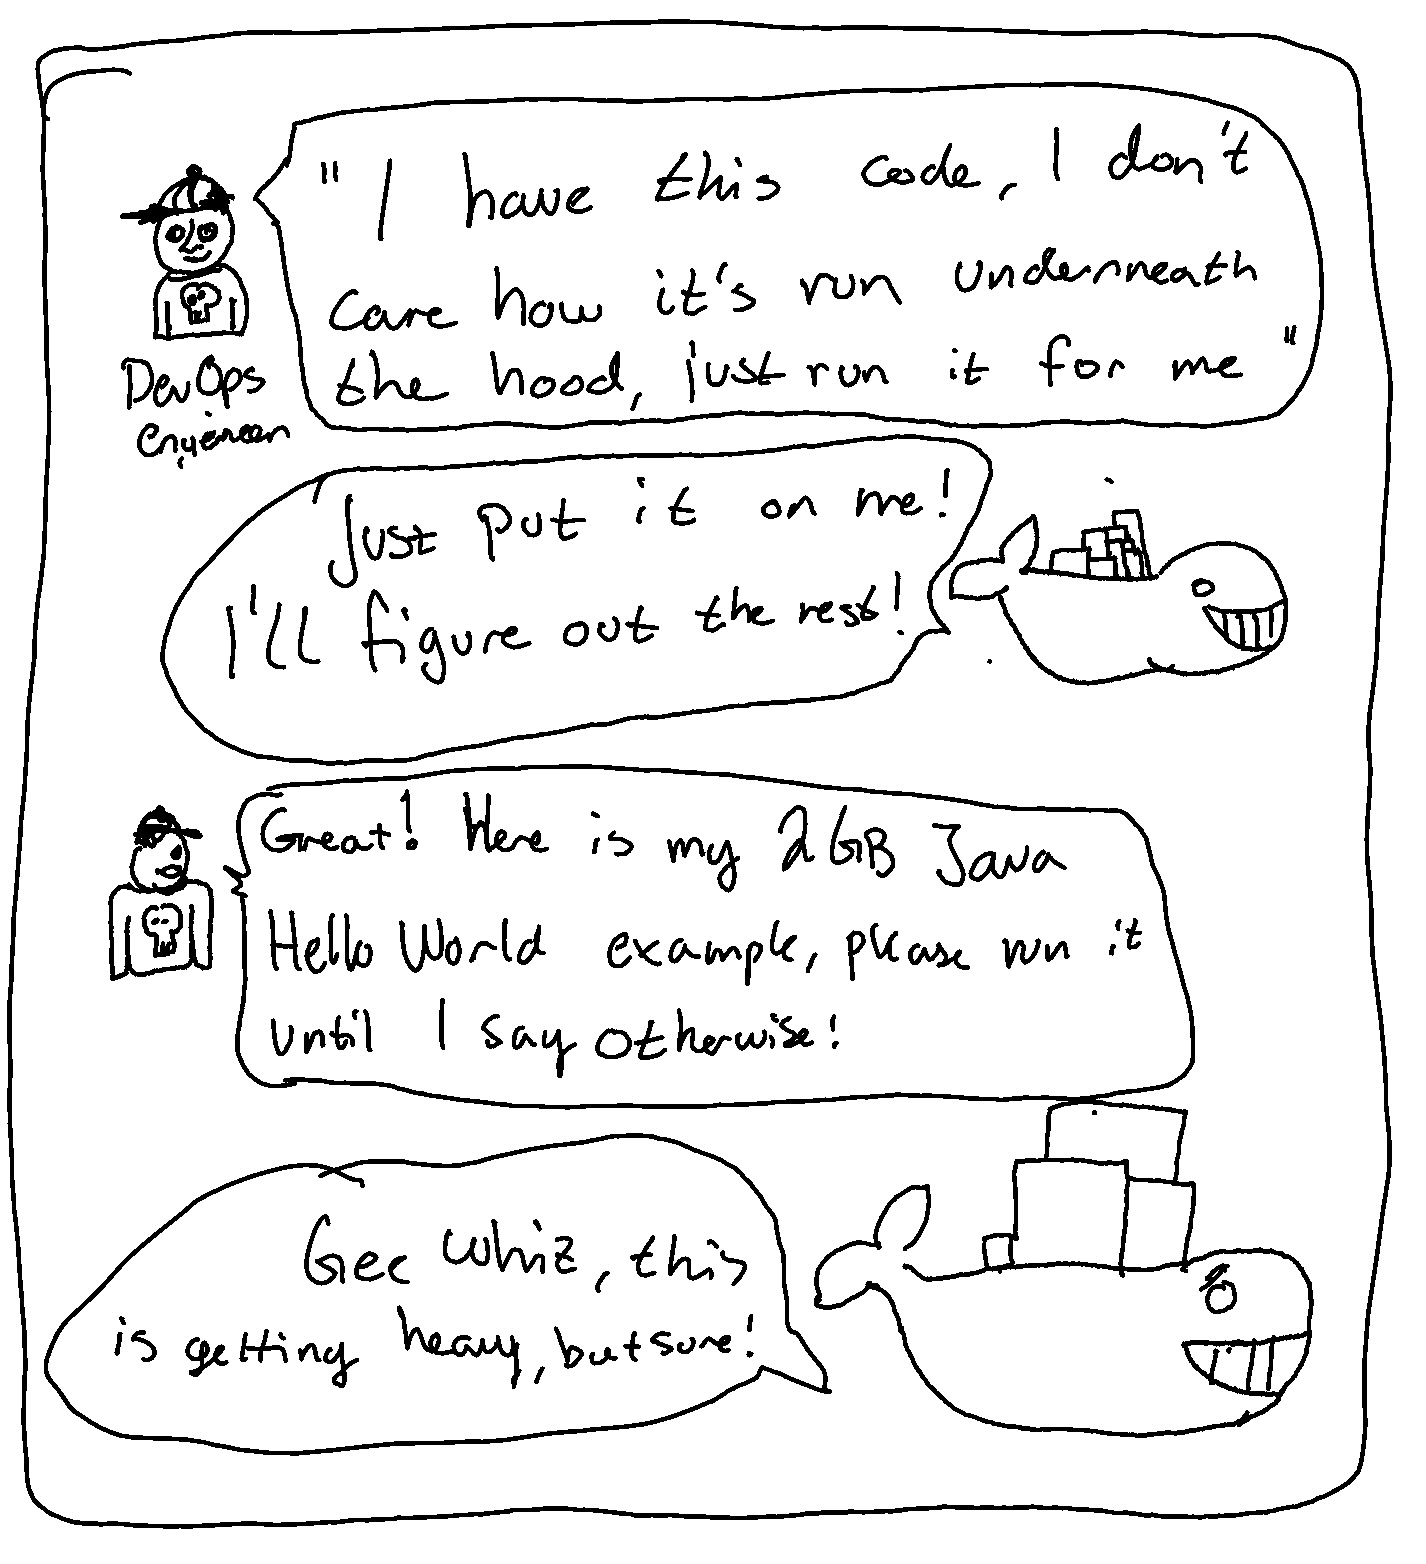 "I have this code, I don't
care how it's run underneath
the hood, just run it for me"
DevOps
engineer
Just put it on me!
I'll figure out the rest!
Great! Here is my 2GB Java
Hello World example, please run it
until I say otherwise!
Gee whiz, this
is getting heavy, but sure!